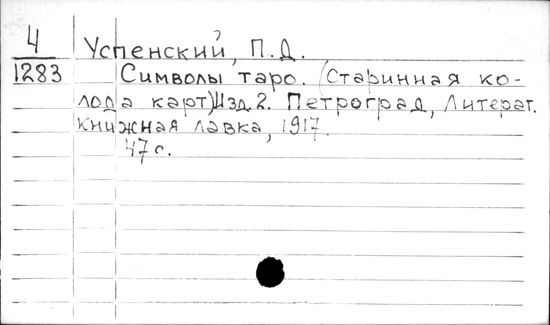 4 Успенский, П.Д.
1283 Символы таро. (Старинная ко-
лода карт) Изд. 2. Петроград, Литерат.
книжная лавка, 1917.
47 с.